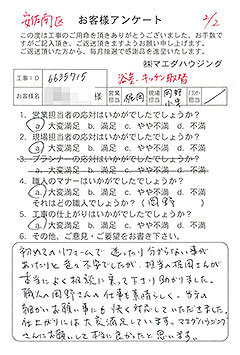 安佐南区
お客様アンケート
2/2
この度は工事のご用命を頂きありがとうございました。お手数で
すがご記入頂き、ご返送頂きますようお願い申し上げます。
ご返送頂いた方から、毎月抽選で感謝品を進呈いたします。
㈱マエダハウジング
工事ID 6635715
浴室、キッチン取替
お客様名 様 営業担当 現場担当
1. 営業担当の応対はいかがでしたでしょうか?
a 大変満足 b 満足 c やや不満 d 不満
2. 現場担当の応対はいかがでしたでしょうか?
a 大変満足 b 満足 c やや不満 d 不満
3. プランナーの応対はいかがでしたでしょうか?
a 大変満足 b 満足 c やや不満 d 不満
4. 職人のマナーはいかがでしたでしょうか?
a 大変満足 b 満足 c やや不満 d 不満
それはどの職人でしょうか?(岡野)
5. 工事の仕上がりはいかがでしたでしょうか?
a 大変満足 b 満足 c やや不満 d 不満
6. その他、ご意見・ご要望をお書き下さい。
初めてのリフォームで迷ったり分からない事が
あったりと色々不安でしたが、担当の
本当によく相談に乗って下さり助かりました。
職人の岡野さんの仕事も素晴らしく、当方の
細かいお願い事にも快く対応していただきました。
仕上がりには大変満足しています。マエダハウジング
さんにお願いして本当に良かったと思います。